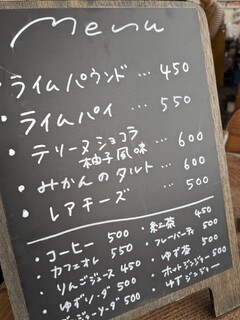 Menu
・ライムパウンド … 450
・ライムパイ … 550
・テリーヌショコラ
柚子風味 … 600
・みかんのタルト … 600
・レアチーズ … 500
・コーヒー 500
・カフェオレ 550
りんごジュース 450
ゆずソーダ 500
ジンジャーソーダ 500
・紅茶 450
・フレーバーティ 500
・ゆず茶 500
・ホットジンジャー 500
・ゆずジンジャー